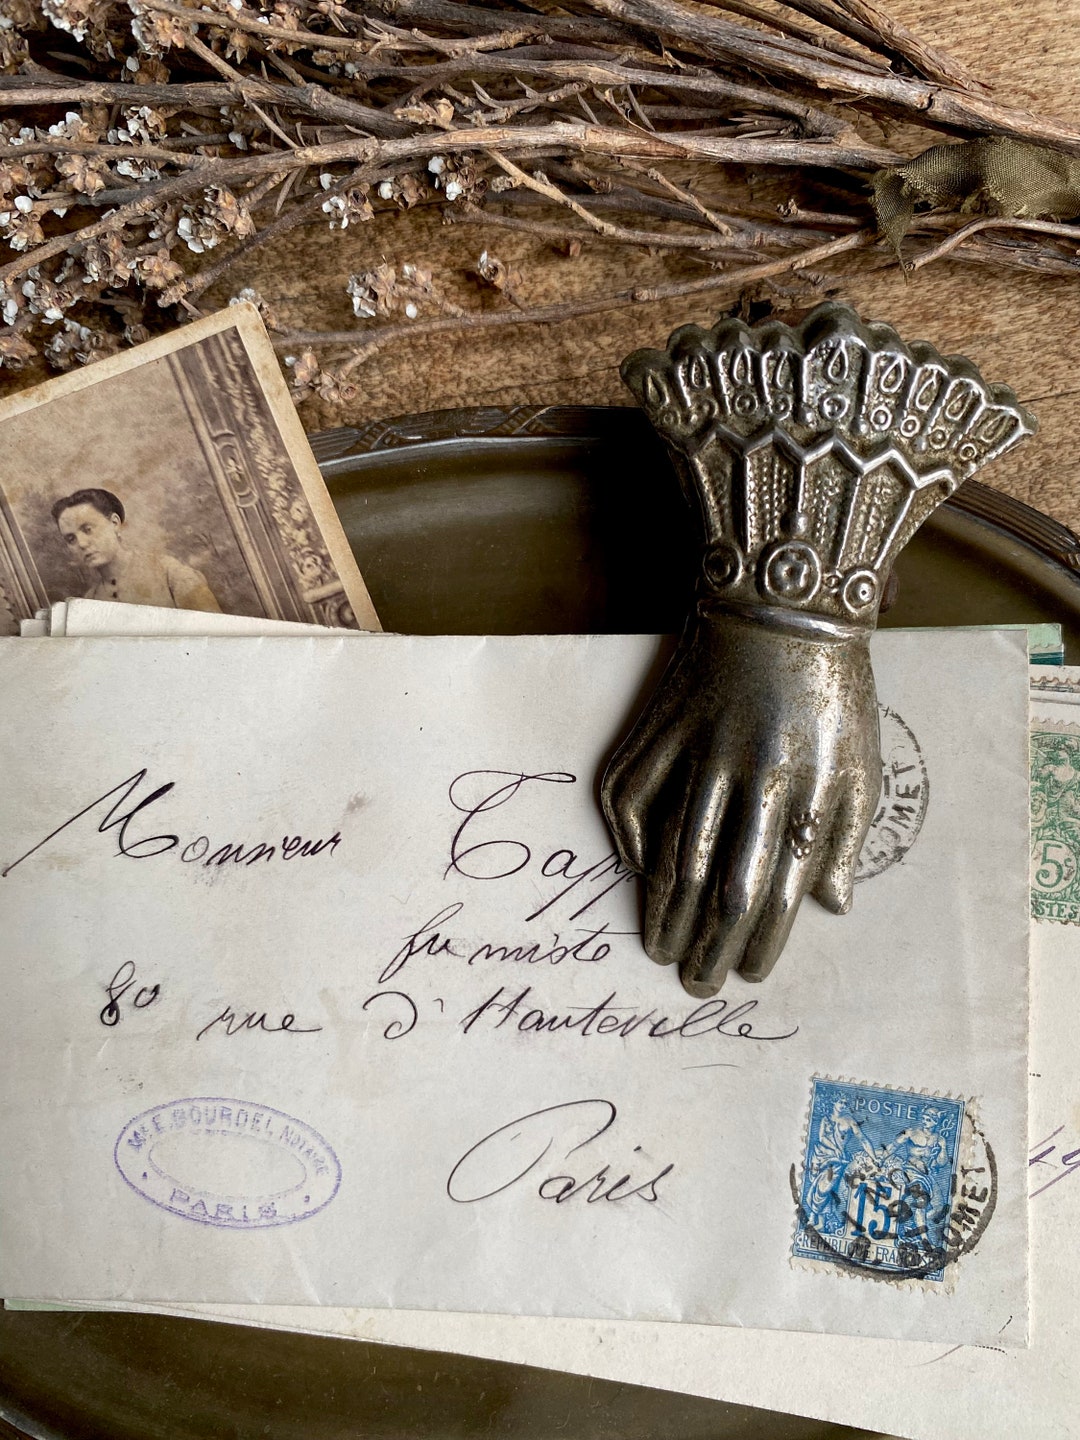 Monsieur
fumiste
80 rue d'Hauteville
Paris
Me E. BOURDEL NOTAIRE
PARIS
POSTE
15
RÉPUBLIQUE FRANÇAISE
5c